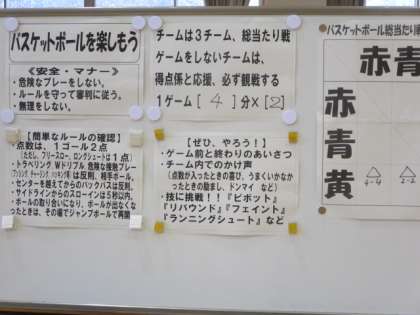 バスケットボールを楽しもう
《安全・マナー》
・危険なプレーをしない。
・ルールを守って審判に従う。
・無理をしない。
チームは３チーム、総当たり戦
ゲームをしないチームは、
得点係と応援、必ず観戦する
１ゲーム［4］分×［2］
【簡単なルールの確認】
・点数は、１ゴール２点
（ただし、フリースロー、ロングシュートは１点）
・トラベリング Wドリブル 危険な接触プレー
は反則、相手ボール
・センターを越えてからのバックパスは反則。
・サイドラインからのスローインは５秒以内。
・ボールの取り合いになり、ボールが出なくな
ったときは、その場でジャンプボールで再開
【ぜひ、やろう！】
・ゲーム前と終わりのあいさつ
・チーム内でのかけ声
（点数が入ったときの喜び、うまくいかなか
ったときの励まし、ドンマイ など）
・技に挑戦！！『ピボット』
『リバウンド』『フェイント』
『ランニングシュート』など
バスケットボール総当たり
赤 青
赤
青
黄
△ 4-4